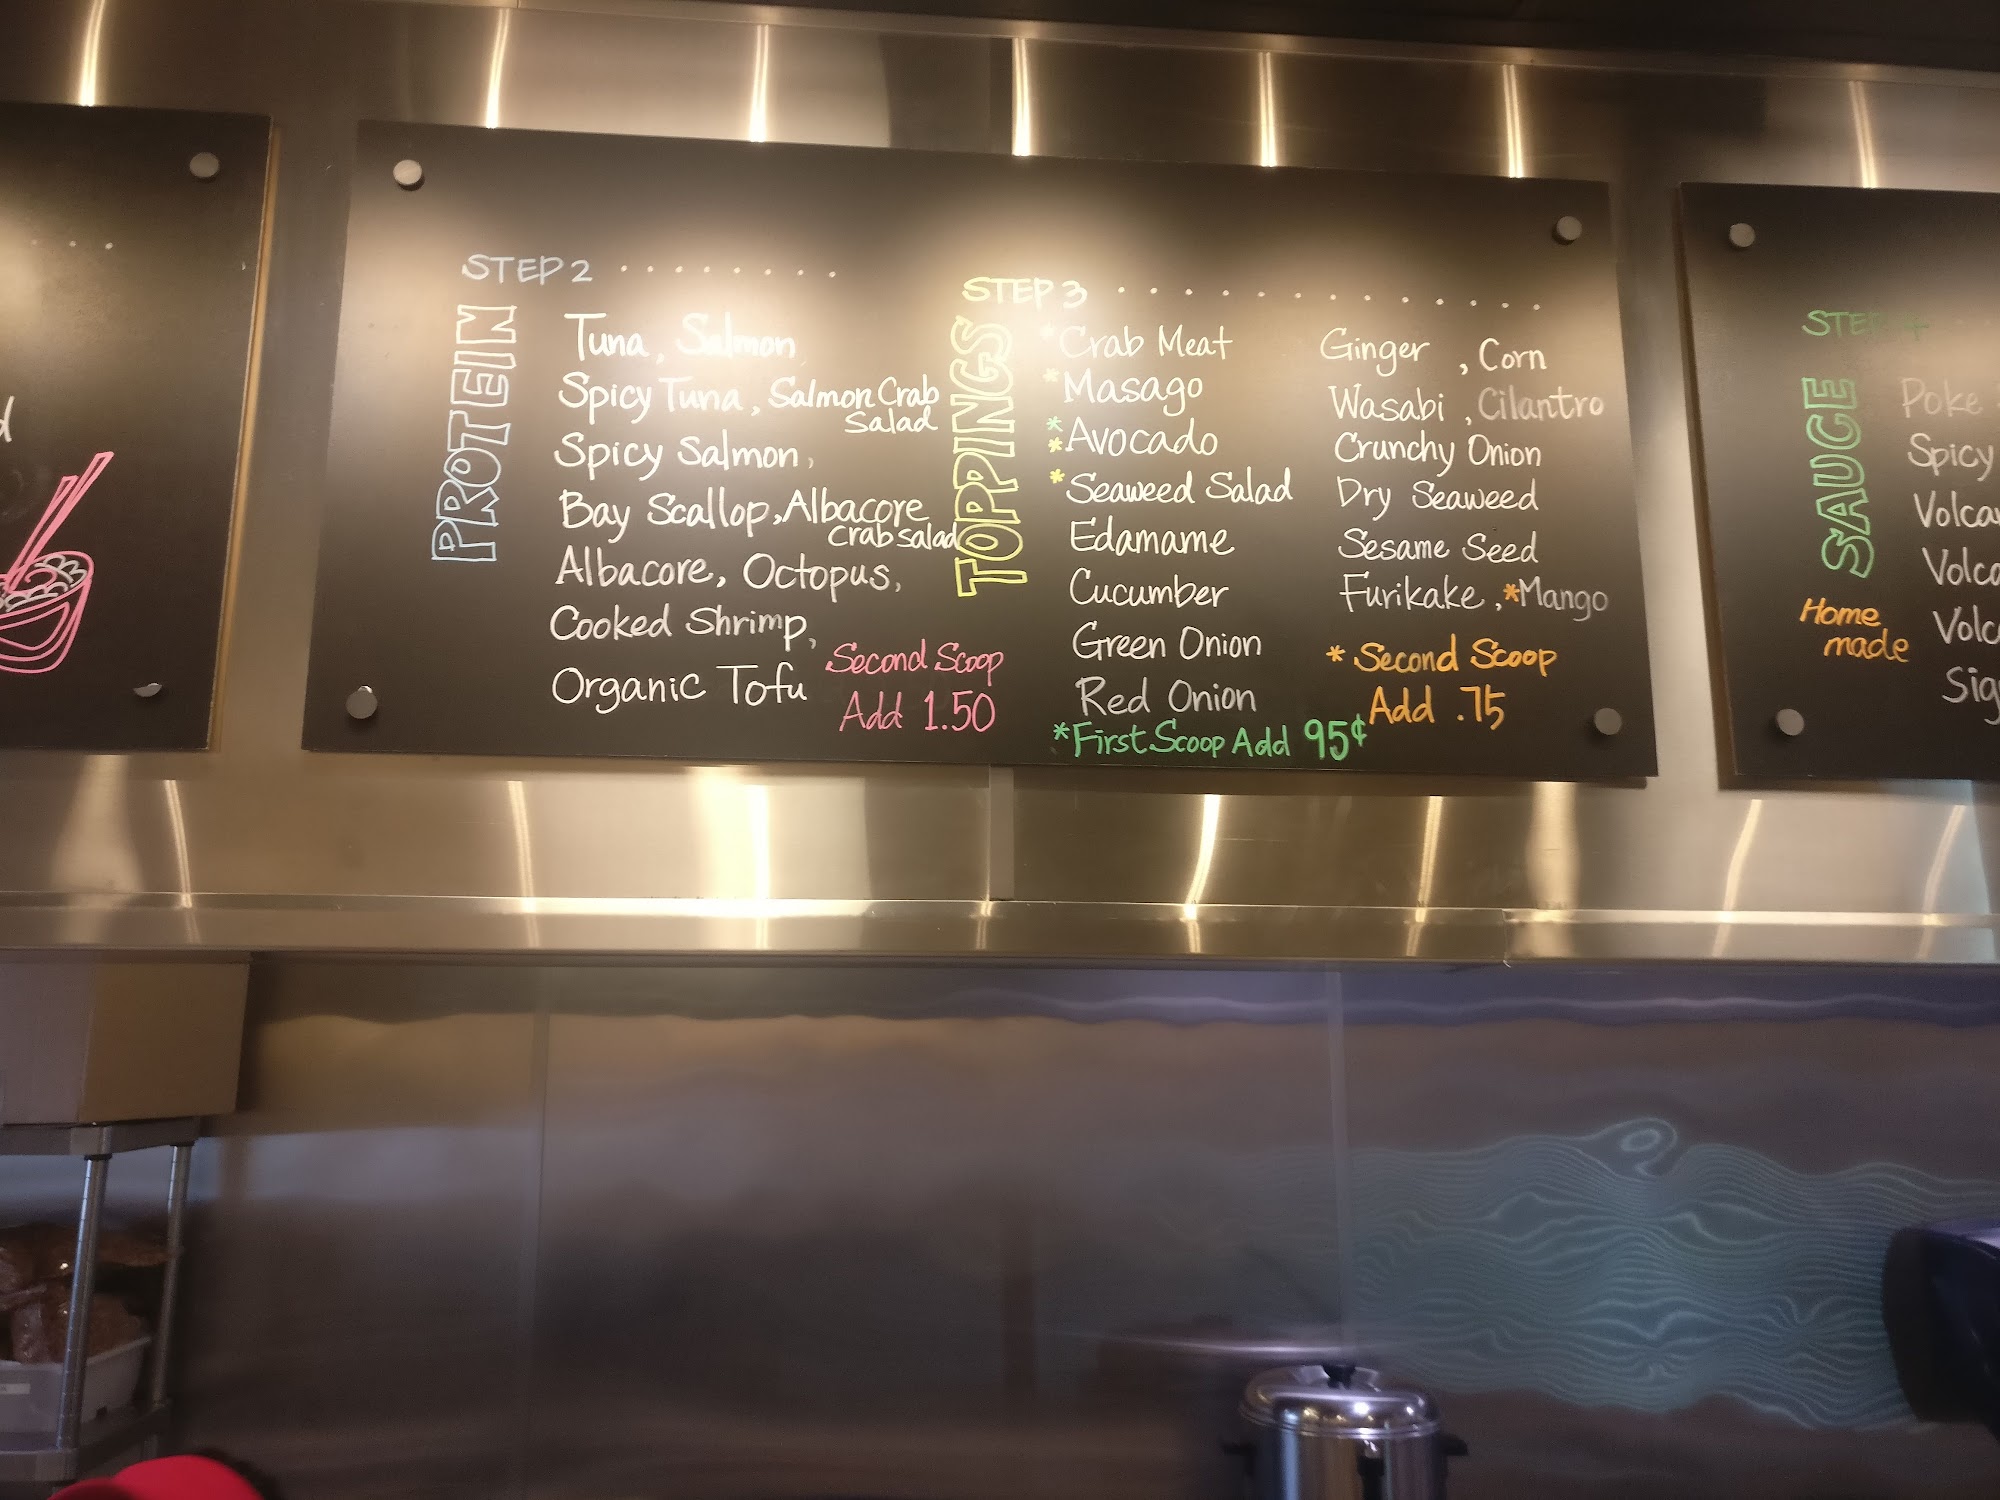 STEP 2 . . . . . . . .
PROTEIN
Tuna, Salmon
Spicy Tuna, Salmon Crab
Salad
Spicy Salmon,
Bay Scallop, Albacore
Crab Salad
Albacore, Octopus,
Cooked Shrimp,
Organic Tofu
Second Scoop
Add 1.50
STEP 3 . . . . . . . . . . . . .
TOPPINGS
*Crab Meat
*Masago
**Avocado
*Seaweed Salad
Edamame
Cucumber
Green Onion
Red Onion
*First Scoop Add 95¢
Ginger , Corn
Wasabi , Cilantro
Crunchy Onion
Dry Seaweed
Sesame Seed
Furikake , *Mango
* Second Scoop
Add .75
STEP 4
SAUCE
Home
made
Poke
Spicy